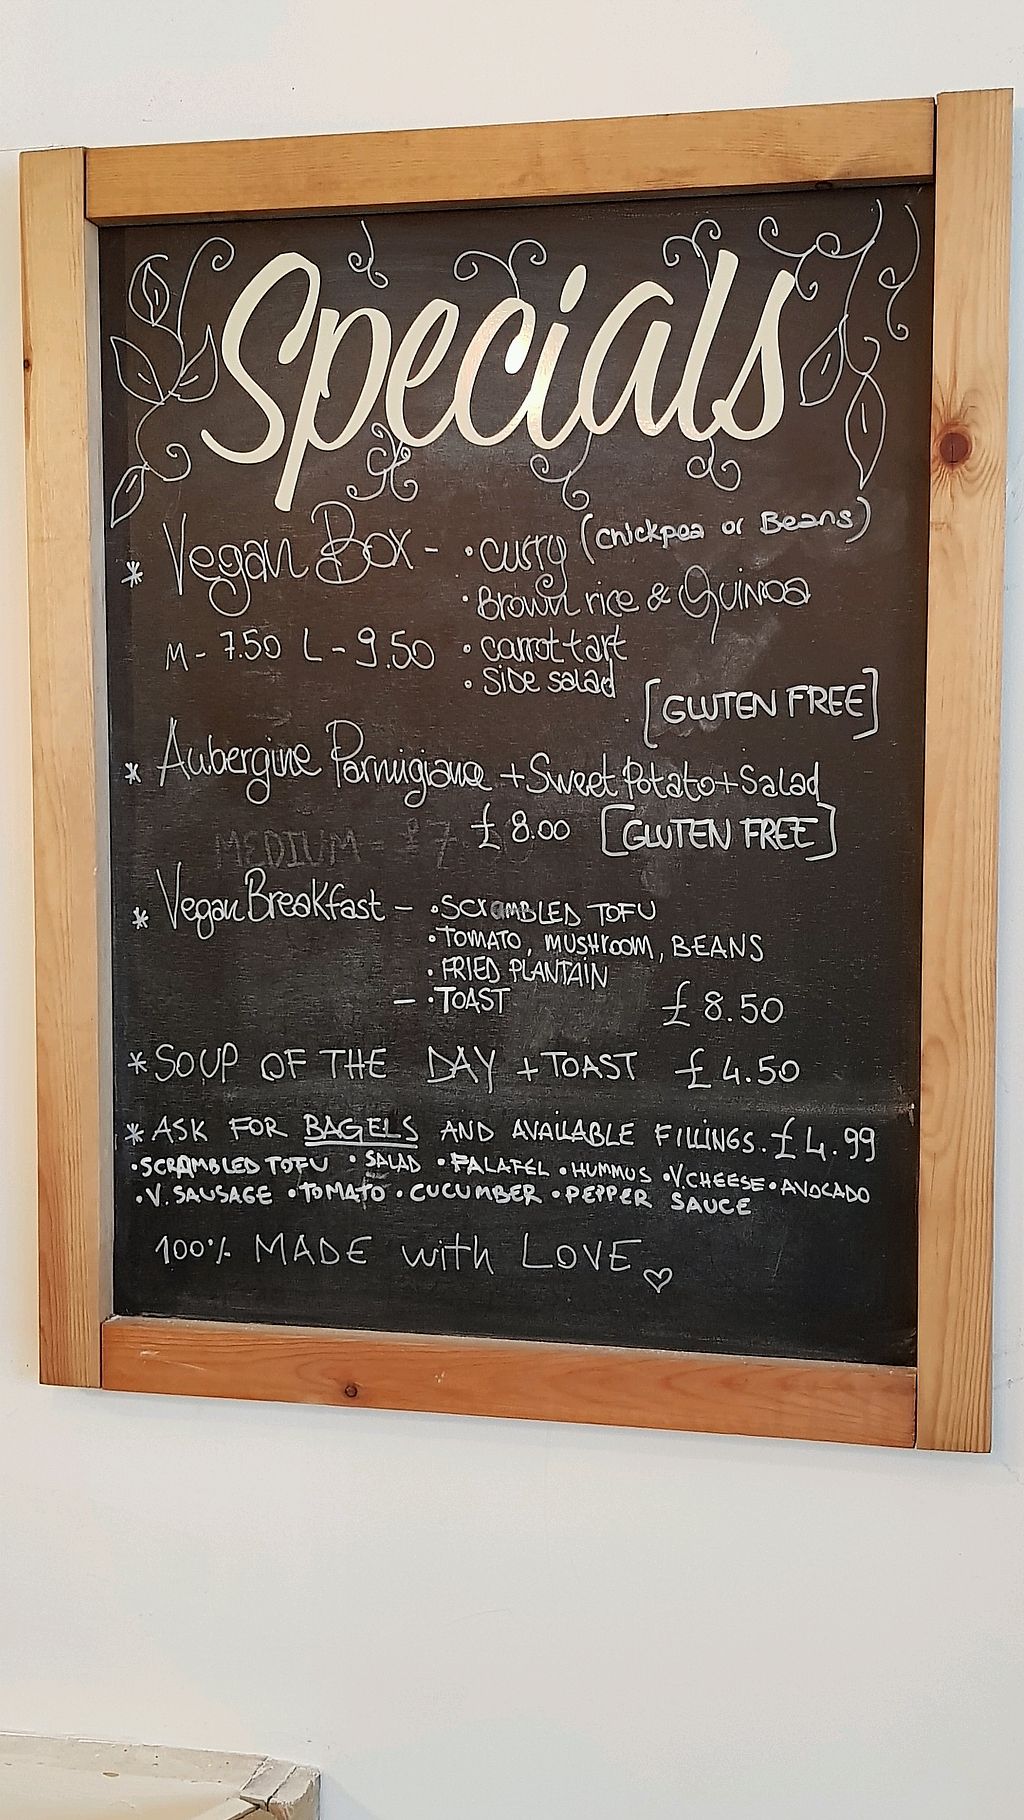 Specials
* Vegan Box - • curry (chickpea or Beans)
• Brown rice & Quinoa
M - 7.50 L - 9.50 • carrot tart
• side salad
[GLUTEN FREE]
* Aubergine Parmigiana + Sweet Potato + Salad
£ 8.00 [GLUTEN FREE]
MEDIUM - £7
* Vegan Breakfast - • SCRAMBLED TOFU
• TOMATO, MUSHROOM, BEANS
• FRIED PLANTAIN
- • TOAST £ 8.50
* SOUP OF THE DAY + TOAST £ 4.50
* ASK FOR BAGELS AND AVAILABLE FILLINGS. £ 4.99
• SCRAMBLED TOFU • SALAD • FALAFEL • HUMMUS • V.CHEESE • AVOCADO
• V. SAUSAGE • TOMATO • CUCUMBER • PEPPER SAUCE
100% MADE with LOVE ♡